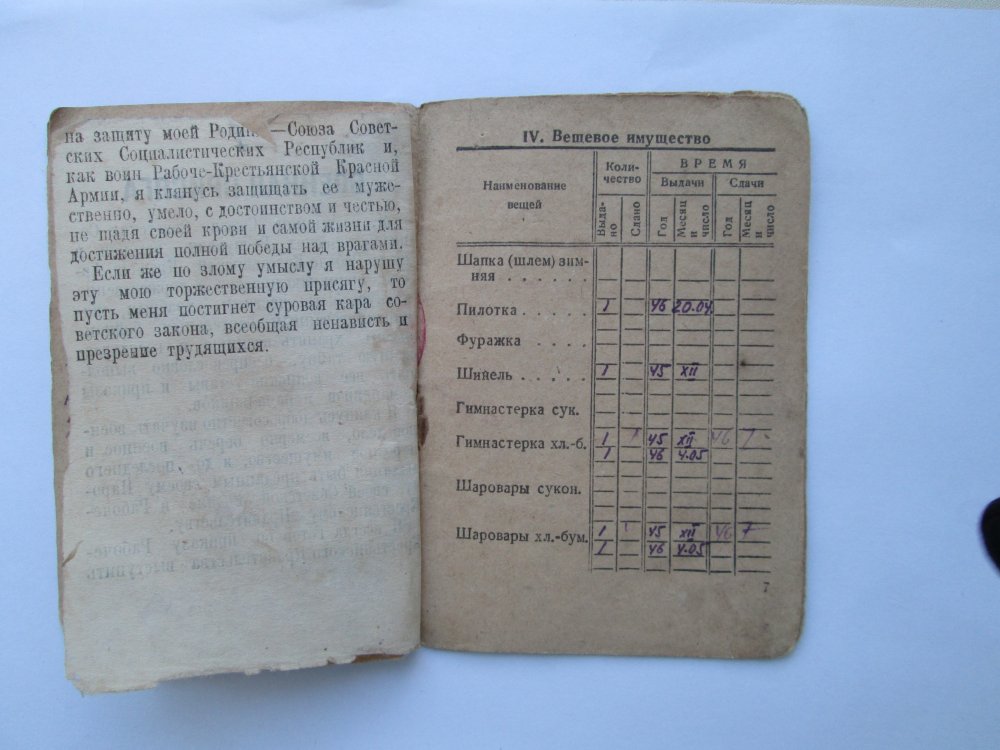 на защиту моей Родины—Союза Совет-
ских Социалистических Республик и,
как воин Рабоче-Крестьянской Красной
Армии, я клянусь защищать ее муже-
ственно, умело, с достоинством и честью,
не щадя своей крови и самой жизни для
достижения полной победы над врагами.
Если же по злому умыслу я нарушу
эту мою торжественную присягу, то
пусть меня постигнет суровая кара со-
ветского закона, всеобщая ненависть и
презрение трудящихся.
IV. Вещевое имущество
Наименование вещей
Коли-
чество
ВРЕМЯ
Выдачи Сдачи
Выда-
но
Сдано
Год
Месяц
и
число
Год
Месяц
и
число
Шапка (шлем) зим-
няя . . . . . .
Пилотка . . . . . 1 46 20.04.
Фуражка . . . .
Шинель . . . . . 1 45 XII
Гимнастерка сук.
Гимнастерка хл.-б. 1 1 45 XII 46 7
1 46 4.05
Шаровары сукон.
Шаровары хл.-бум. 1 1 45 XII 46 7
1 46 4.05
7